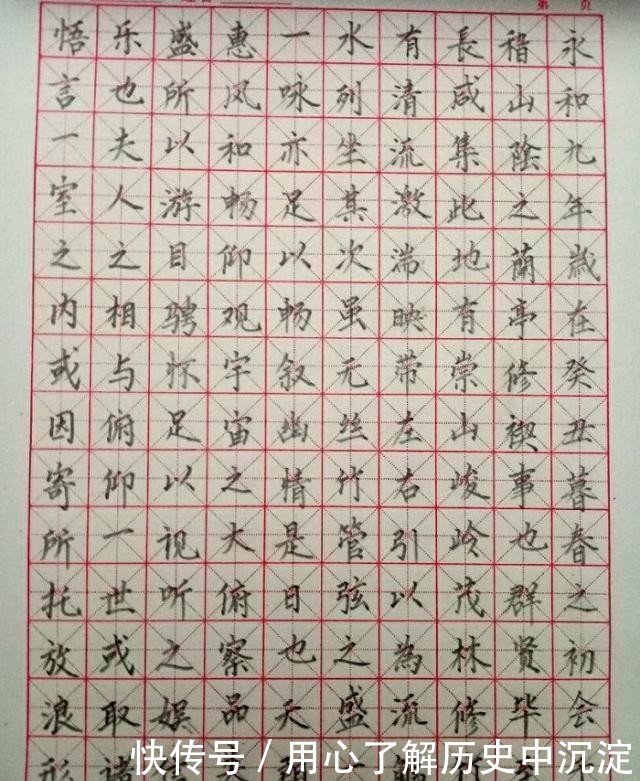 第 页
永和九年歲在癸丑暮春之初会
稽山陰之蘭亭修禊事也群贤毕
長咸集此地有崇山峻岭茂林修
有清流激湍映带左右引以為流
水列坐其次虽无丝竹管弦之盛
一咏亦足以畅叙幽情是日也天
惠风和畅仰观宇宙之大俯察品
盛所以游目骋怀足以视听之娱
乐也夫人之相与俯仰一世或取诸
悟言一室之内或因寄所托放浪形
快传号/用心了解历史中沉淀